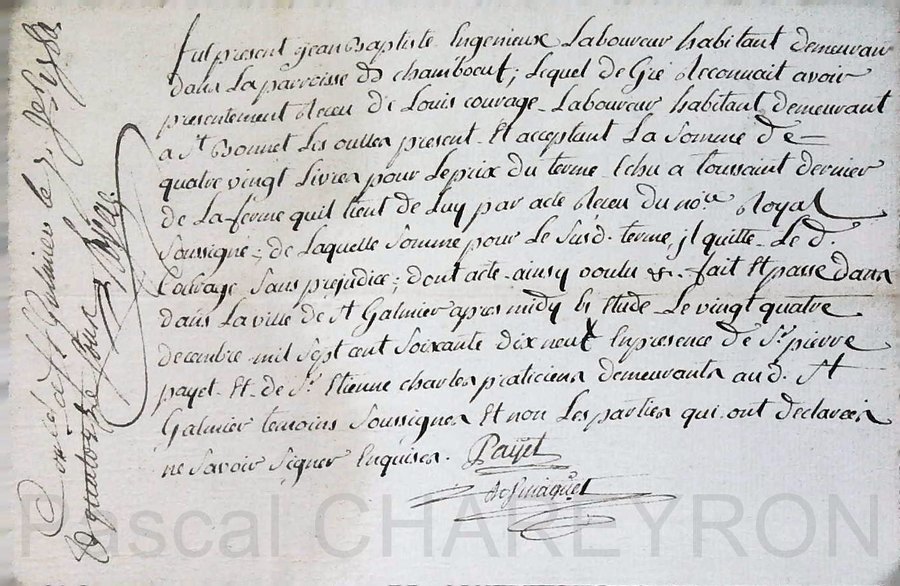 fut present jean Baptiste Ingenieux Laboureur habitant demeurant
dans La parroisse de chambœut, Lequel de Gré Reconnait avoir
presentement Receu de Louis courage Laboureur habitant demeurant
a St Bonnet Les oulles present Et acceptant La Somme de
quatre vingt Livres pour Le prix du terme Echu a toussaint dernier
de La ferme quil tient de Luy par acte Receu du nore Royal
Soussigne, de Laquelle Somme pour Le Susd. terme, jl quitte Le d.
Courage Sans prejudice; dont acte ainsy voulu &. fait Et passé dans
dans La ville de St Galmier apres midy Es Etude Le vingt quatre
decembre mil Sept cent Soixante dix neuf En presence de Sr. pierre
payet Et de Sr. Etienne charles praticiens demeurants aud. St
Galmier temoins Soussignes Et non Les parties qui ont declarées
ne Savoir Signer Enquises. Payet
Controlé à St Galmier le
Rx quatorze sous
Pascal CHAREYRON